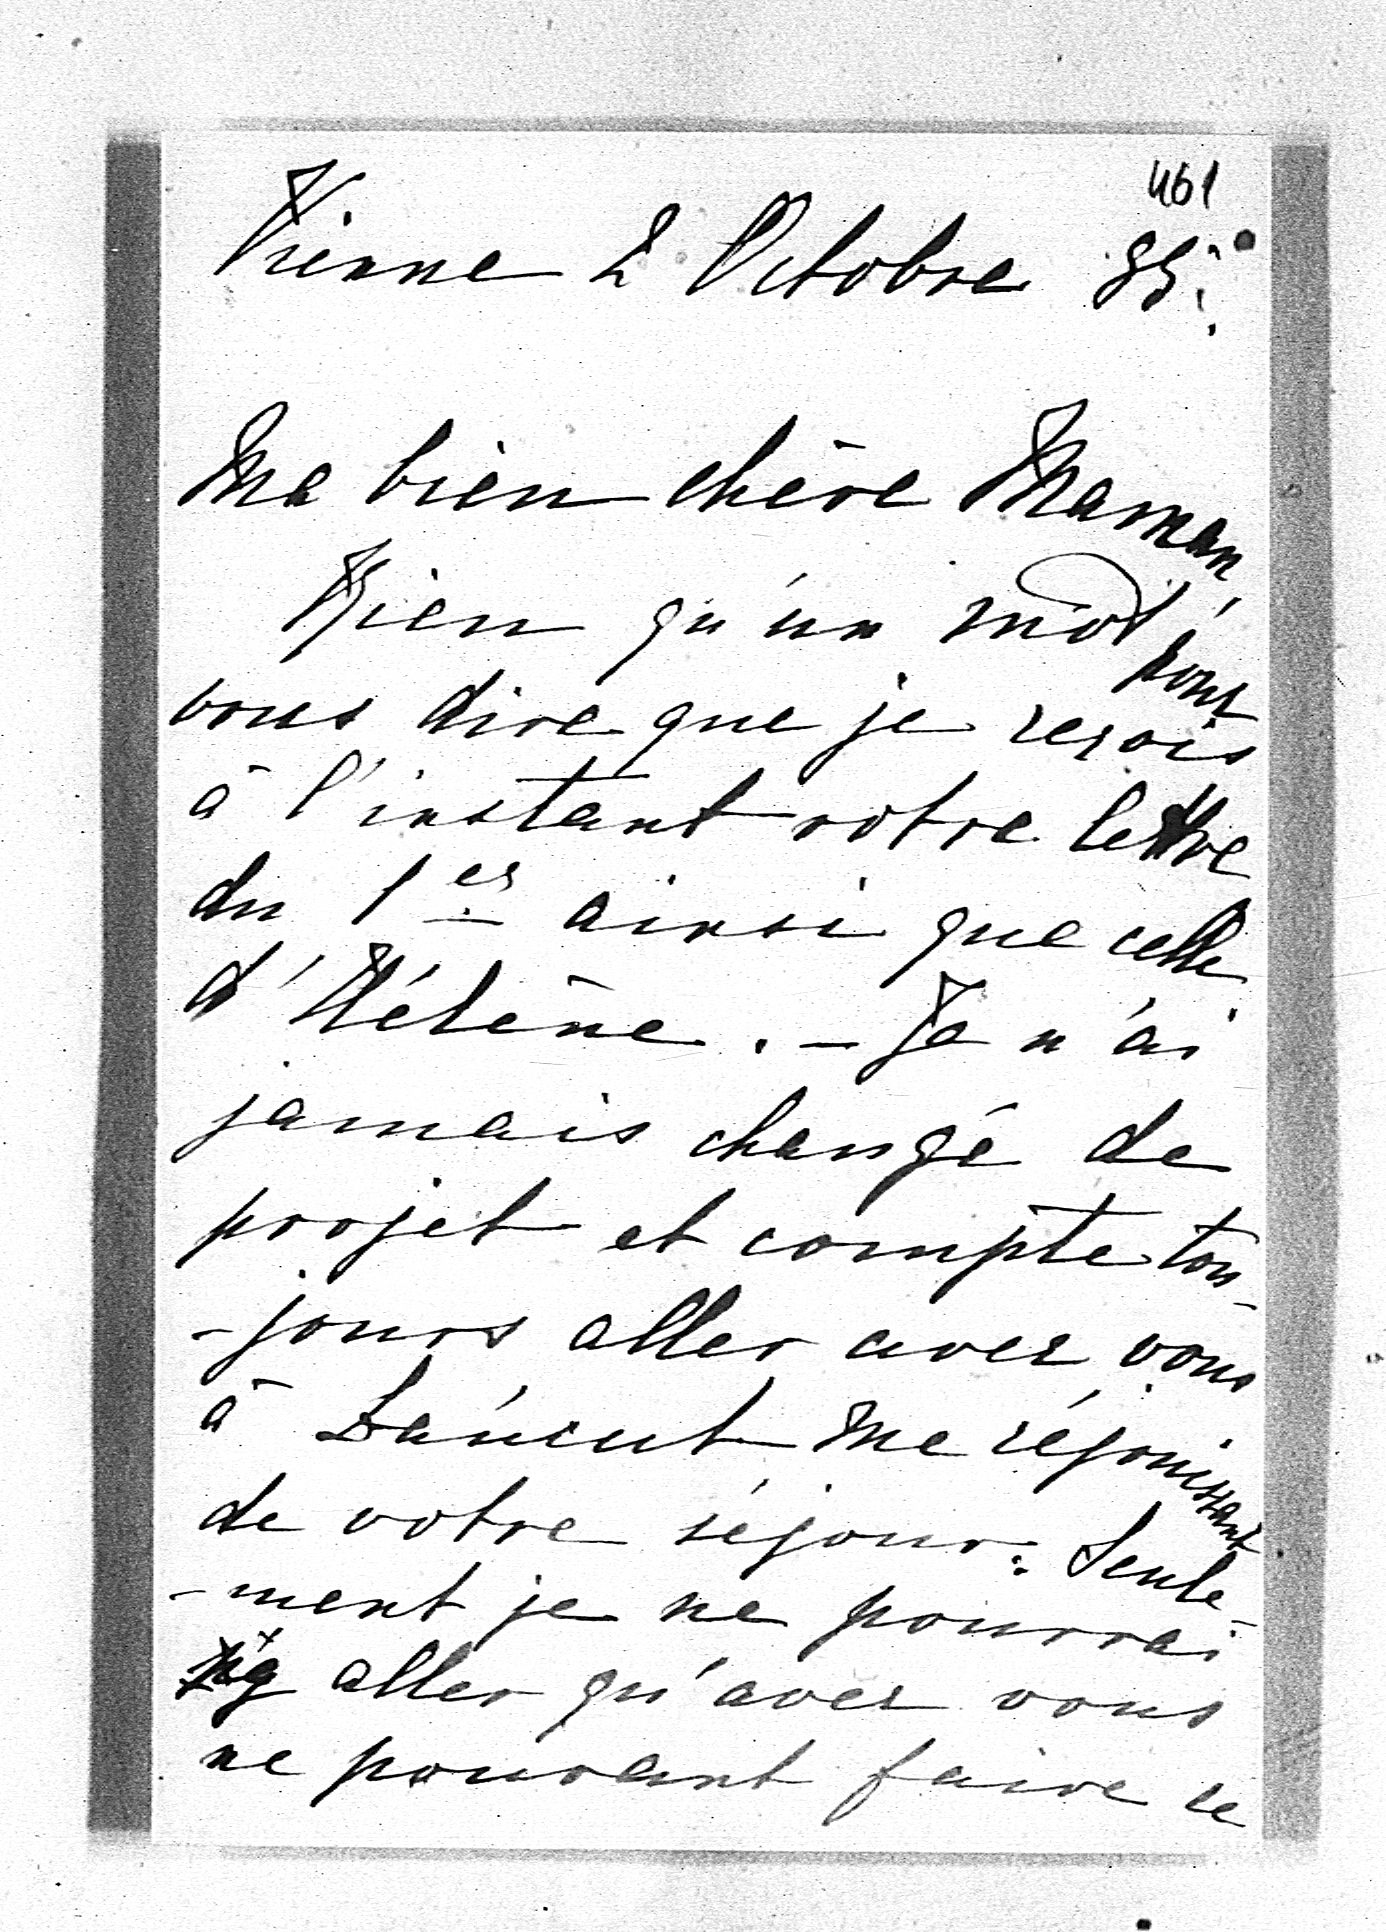 461
Vienne 2 Octobre 85.
Ma bien chère Maman,
Rien qu'un mot pour
vous dire que je reçois
à l'instant votre lettre
du 1er ainsi que celle
d'Hélène. – Je n'ai
jamais changé de
projet et compte tou-
-jours aller avec vous
à Łańcut me réjouissant
de votre séjour. Seule-
-ment je ne pourrai
y aller qu'avec vous
ne pouvant faire ce